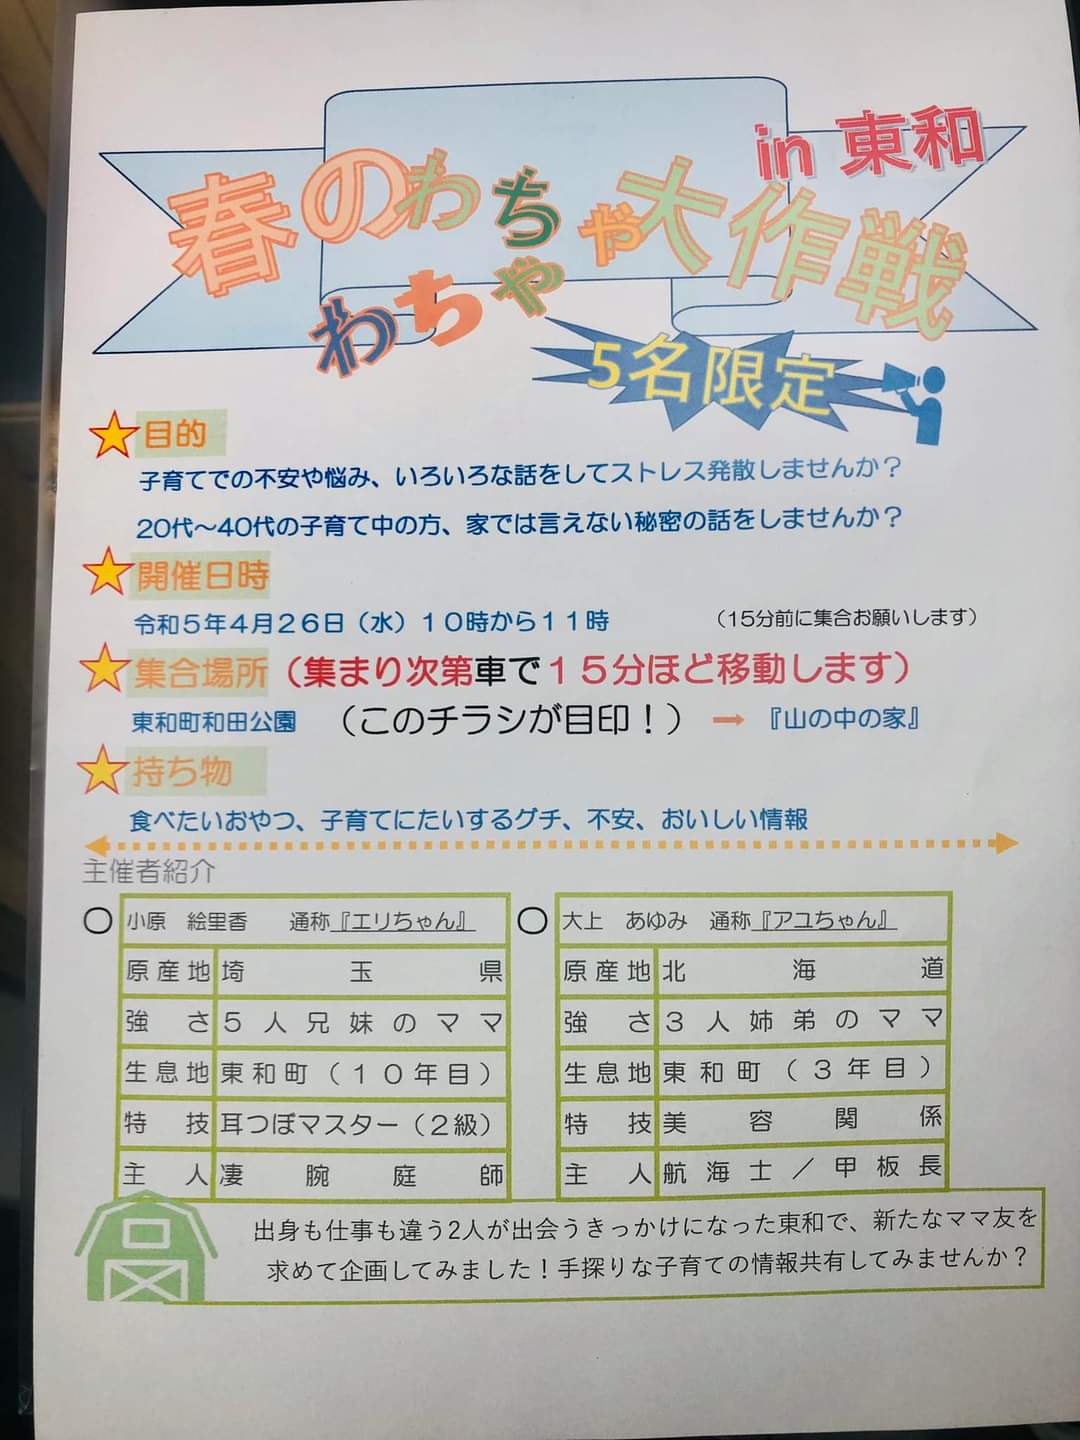 春のわちゃわちゃ大作戦
in 東和
5名限定
目的
子育てでの不安や悩み、いろいろな話をしてストレス発散しませんか？
20代～40代の子育て中の方、家では言えない秘密の話をしませんか？
開催日時
令和５年４月２６日（水）１０時から１１時 （15分前に集合お願いします）
集合場所（集まり次第車で１５分ほど移動します）
東和町和田公園 （このチラシが目印！）→『山の中の家』
持ち物
食べたいおやつ、子育てにたいするグチ、不安、おいしい情報
主催者紹介
○ 小原 絵里香 通称『エリちゃん』
原産地 埼玉県
強さ ５人兄妹のママ
生息地 東和町（１０年目）
特技 耳つぼマスター（２級）
主人 凄腕庭師
○ 大上 あゆみ 通称『アユちゃん』
原産地 北海道
強さ ３人姉弟のママ
生息地 東和町（３年目）
特技 美容関係
主人 航海士／甲板長
出身も仕事も違う2人が出会うきっかけになった東和で、新たなママ友を
求めて企画してみました！手探りな子育ての情報共有してみませんか？